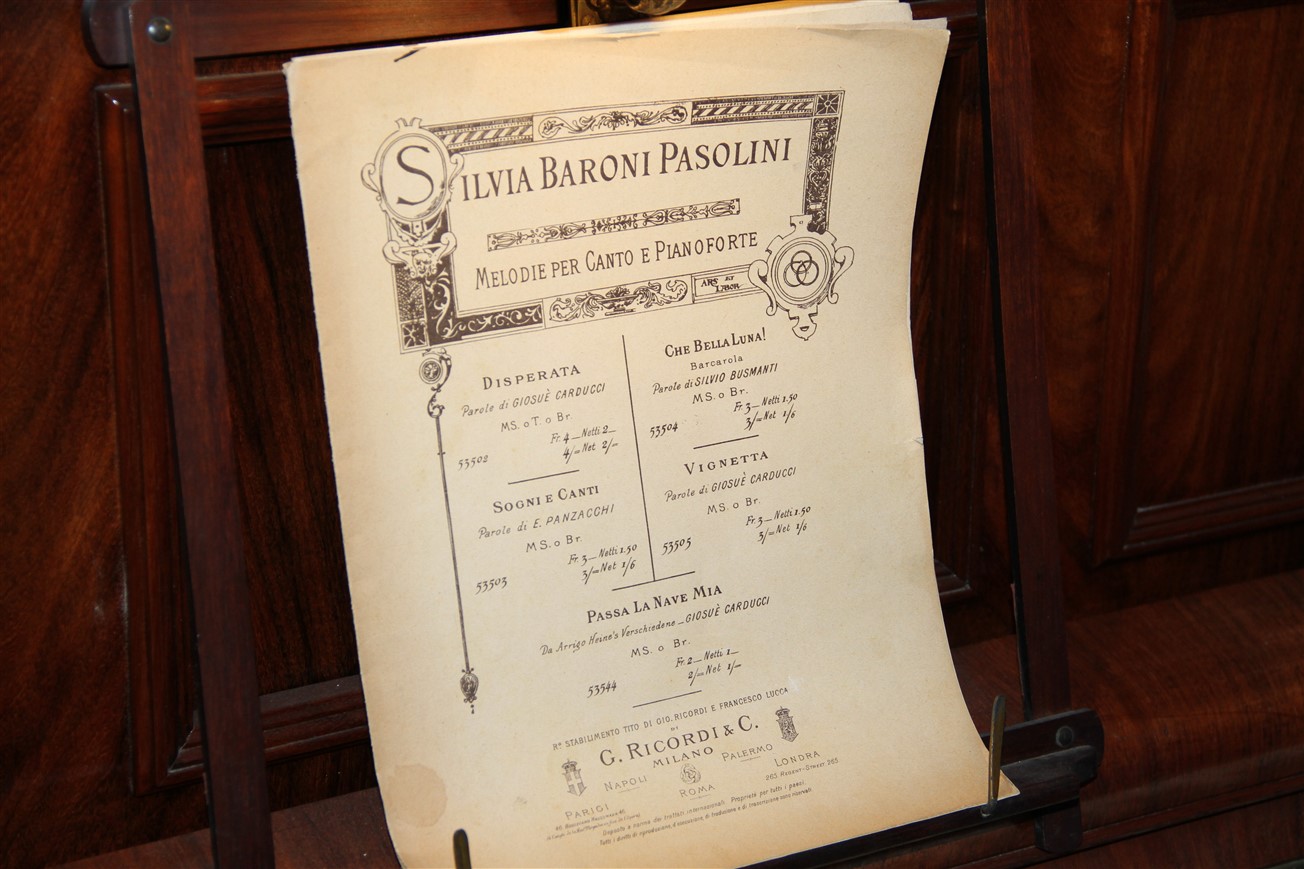 SILVIA BARONI PASOLINI
MELODIE PER CANTO E PIANOFORTE
ARS ET
LABOR
DISPERATA
Parole di GIOSUÈ CARDUCCI
MS. o T. o Br.
Fr. 4 — Netti 2 —
53502 4/= Net 2/=
SOGNI E CANTI
Parole di E. PANZACCHI
MS. o Br.
Fr. 3 — Netti 1.50
53503 3/= Net 1/6
CHE BELLA LUNA!
Barcarola
Parole di SILVIO BUSMANTI
MS. o Br.
Fr. 3 — Netti 1.50
53504 3/= Net 1/6
VIGNETTA
Parole di GIOSUÈ CARDUCCI
MS. o Br.
Fr. 3 — Netti 1.50
53505 3/= Net 1/6
PASSA LA NAVE MIA
Da Arrigo Heine's Verschiedene — GIOSUÈ CARDUCCI
MS. o Br.
Fr. 2 — Netti 1 —
53544 2/= Net 1/=
Rº STABILIMENTO TITO DI GIO. RICORDI E FRANCESCO LUCCA
DI
G. RICORDI & C.
MILANO
NAPOLI ROMA PALERMO
PARIGI LONDRA
265 REGENT-STREET 265
Deposto a norma dei trattati internazionali. Proprietà per tutti i paesi.
Tutti i diritti di riproduzione, d'esecuzione, di traduzione e di trascrizione sono riservati.